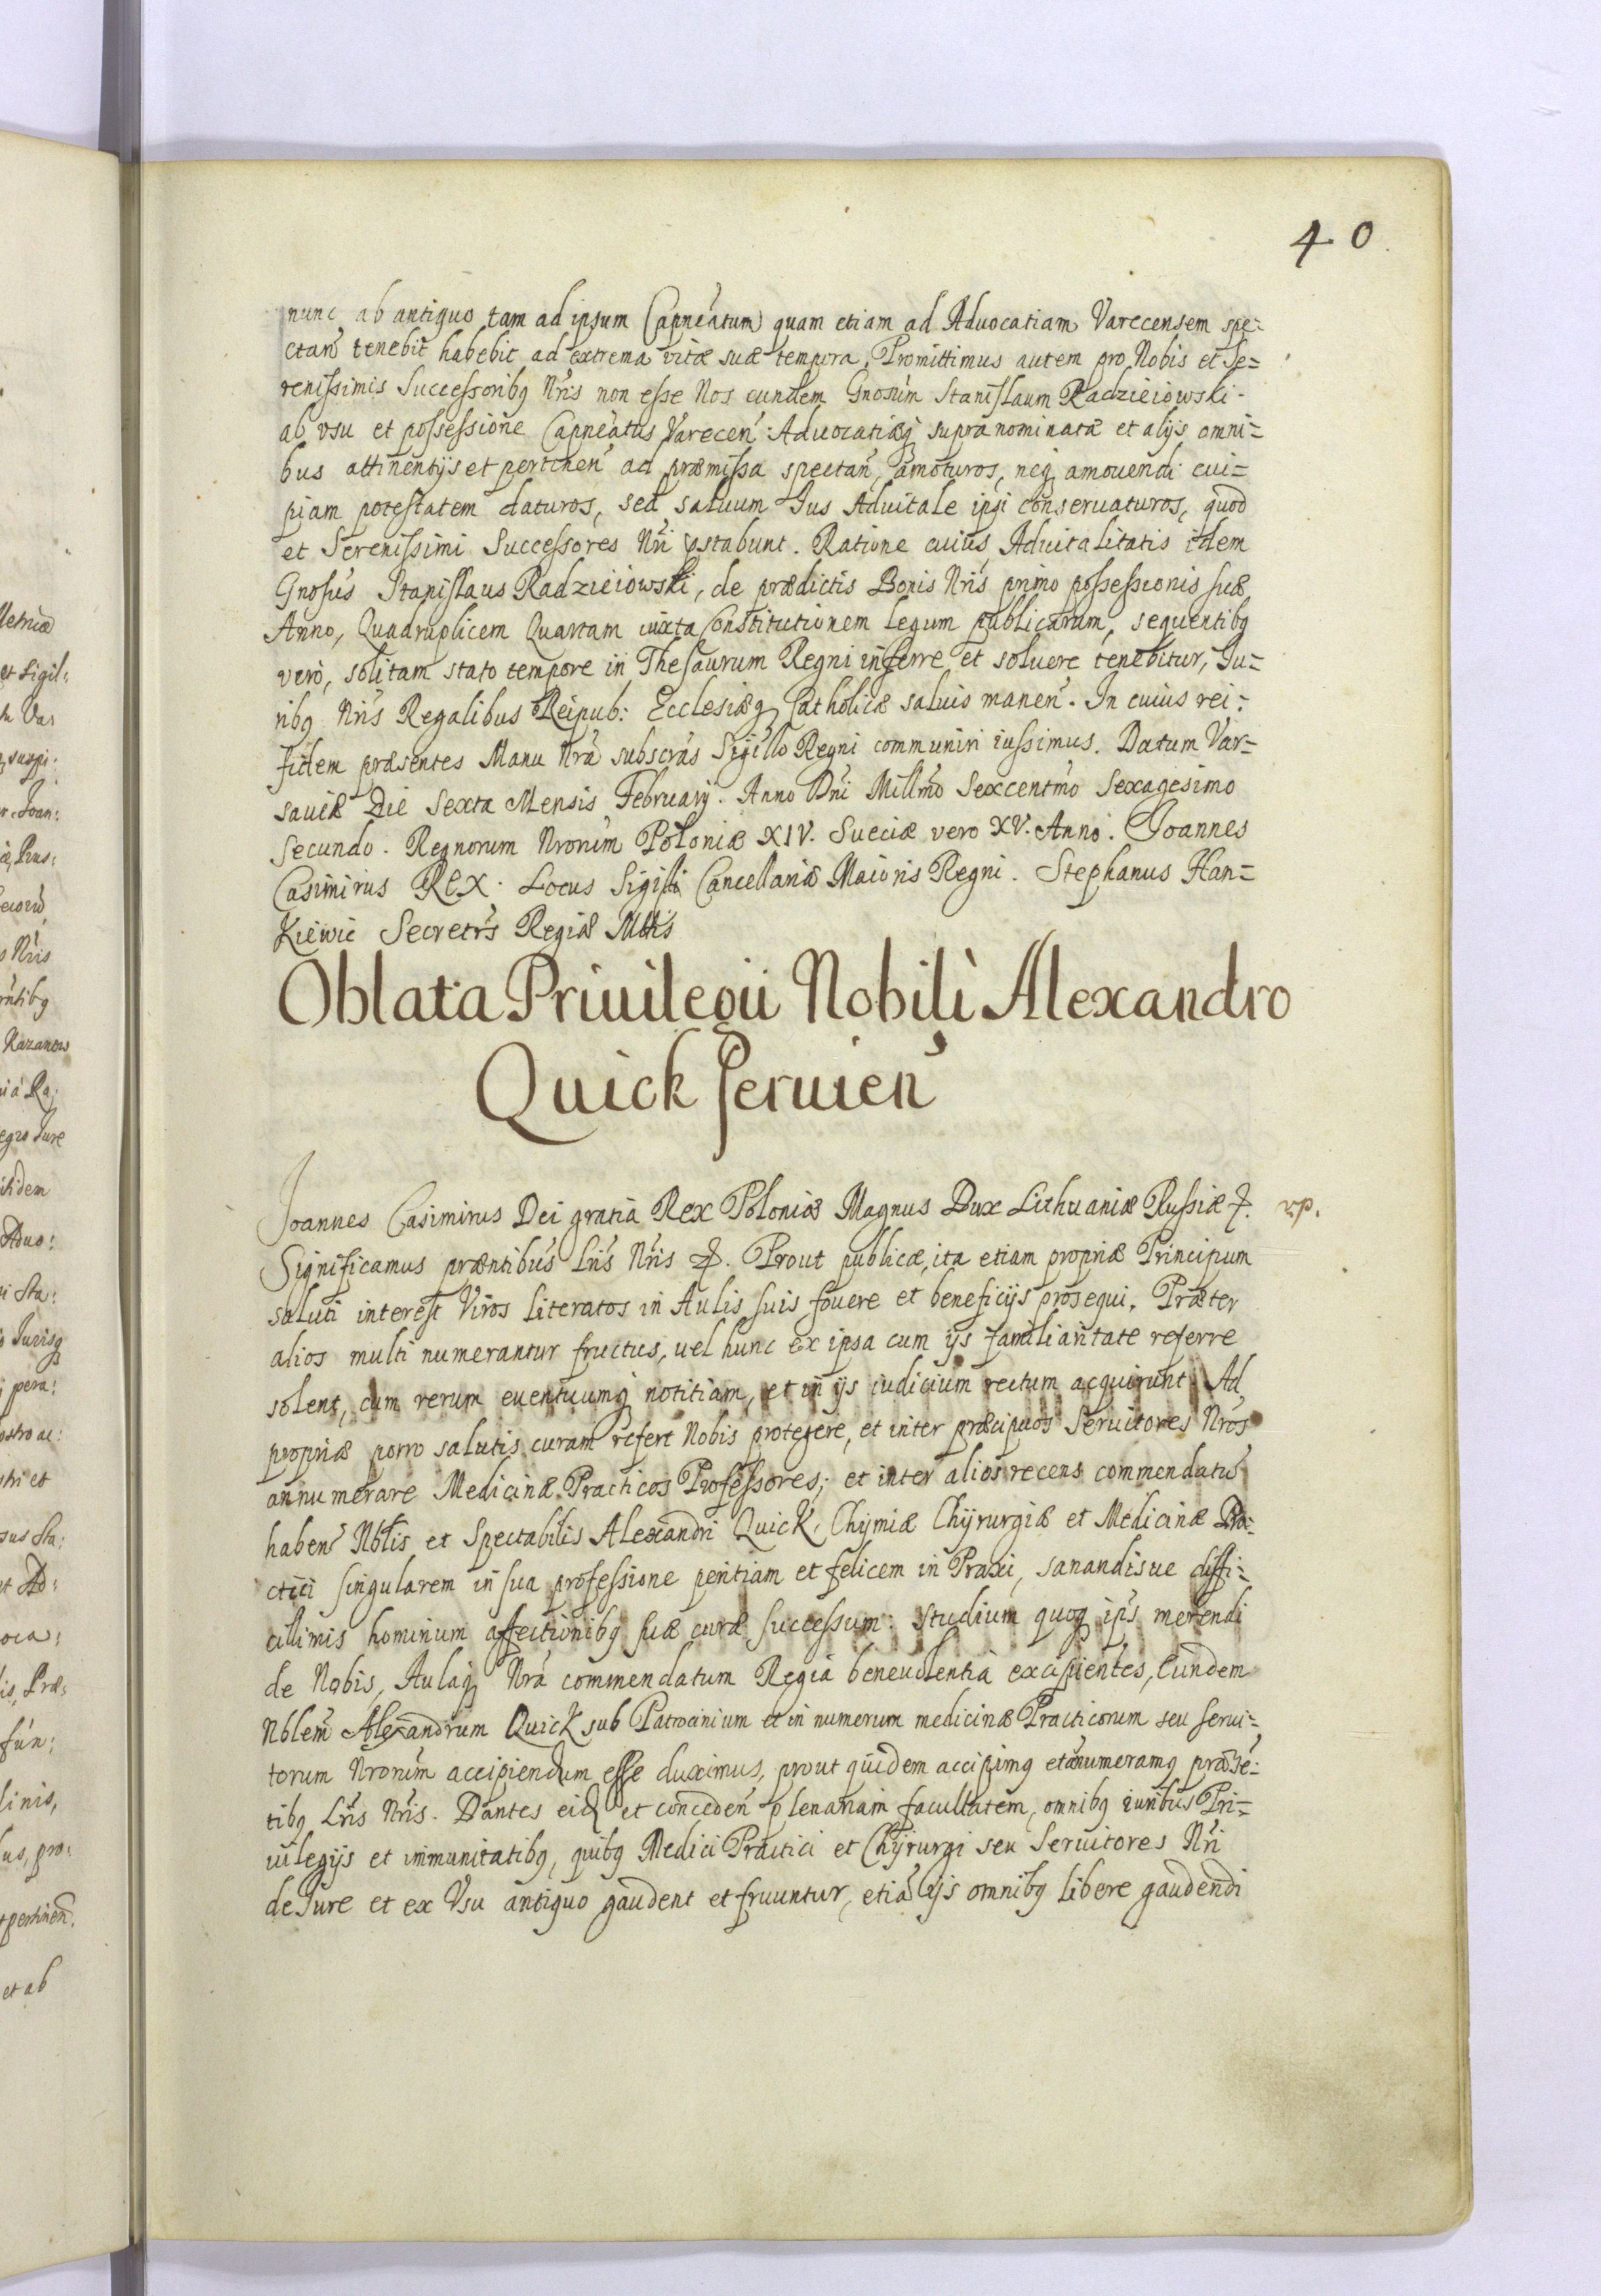 40
nunc ab antiquo tam ad ipsum Capneatum quam etiam ad Advocatiam Varecensem spe:
ctan̄ tenebit habebit ad extrema vitæ suæ tempora. Promittimus autem pro Nobis et Se=
renissimis Successoribq Nr̄is non esse Nos eundem Gnosum Stanislaum Radzieiowski
ab vsu et possessione Capneatus Varecen̄ Aduocatiæq supra nominatæ et alijs omni=
bus attinentijs et pertinen̄ ad præmissa spectan̄, amoturos, neq amouendi cui=
piam potestatem daturos, sed saluum Jus Aduitale ipsi conseruaturos, quod
et Serenissimi Successores Nr̄i pstabunt. Ratione cuius Aduitalitatis idem
Gnosus Stanislaus Radzieiowski, de prædictis Bonis Nr̄is primo possessionis suæ
Anno, Quadruplicem Quartam iuxta Constitutionem legum publicarum, sequentibq
verò, solitam stato tempore in Thesaurum Regni inferre et soluere tenebitur, Ju=
ribq Nr̄is Regalibus Reipub: Ecclesiæq Catholicæ saluis manen̄. In cuius rei:
fidem præsentes Manu Nrā subscrās Sigillo Regni communiri iussimus. Datum Var=
saviæ Die Sexta Mensis February. Anno Dn̄i Millm̄o Sexcentm̄o Sexagesimo
Secundo. Regnorum Nrorum Poloniæ XIV. Sueciæ vero XV. Anno. Joannes
Casimirus REX. Locus Sigilli Cancellariæ Maioris Regni. Stephanus Han=
Kiewic Secretr̄s Regiæ Mttis
Oblata Priuilegii Nobili Alexandro
Quick seruien̄
Joannes Casimirus Dei gratia Rex Poloniæ Magnus Dux Lithuaniæ Russiæ &. rp.
Significamus præntibus Lr̄is Nr̄is &. Prout publicæ, ita etiam propriæ Principum
saluti interest Viros literatos in Aulis suis fouere et beneficijs prosequi. Præter
alios multi numerantur fructus, uel hunc ex ipsa cum ijs familiaritate referre
solent, cum rerum euentuumq notitiam, et in ijs iudicium rectum acquirunt Ad
propriæ porro salutis curam refert Nobis protegere, et inter præcipuos Seruitores Nrōs
annumerare Medicinæ Practicos Professores; et inter alios recens commendatū
haben̄ Nblis et Spectabilis Alexandri Quick, Chymiæ Chyrurgiæ et Medicinæ Pra:
ctici singularem in sua professione peritiam et felicem in Praxi, sanandisue diffi=
cillimis hominum affectionibq suæ curæ successum: studium quoq ips̄ merendi
de Nobis, Aulaq Nrā commendatum Regia beneuolentia excipientes, Eundem
Nblem Alexandrum Quick sub Patrocinium et in numerum medicinæ Practicorum seu serui=
torum Nrorum accipiendum esse duximus, prout quidem accipimq et ānumeramq præsē:
tibq Lr̄is Nr̄is. Dantes eid et conceden̄ plenariam facultatem, omnibq iuribus Pri=
uilegijs et immunitatibq, quibq Medici Practici et Chyrurgi seu Seruitores Nr̄i
de Jure et ex Vsu antiquo gaudent et fruuntur, etiā ijs omnibq libere gaudendi